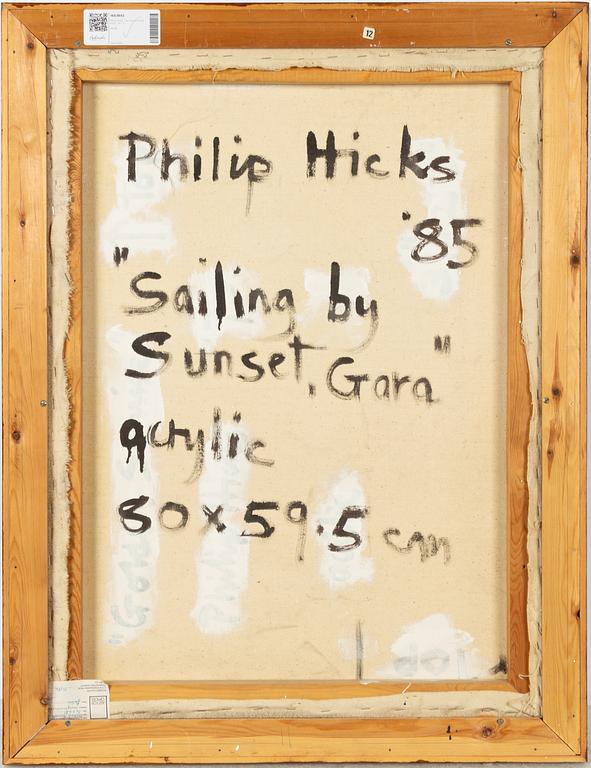 12
Philip Hicks
'85
"Sailing by
Sunset, Gara"
acrylic
80 x 59.5 cm